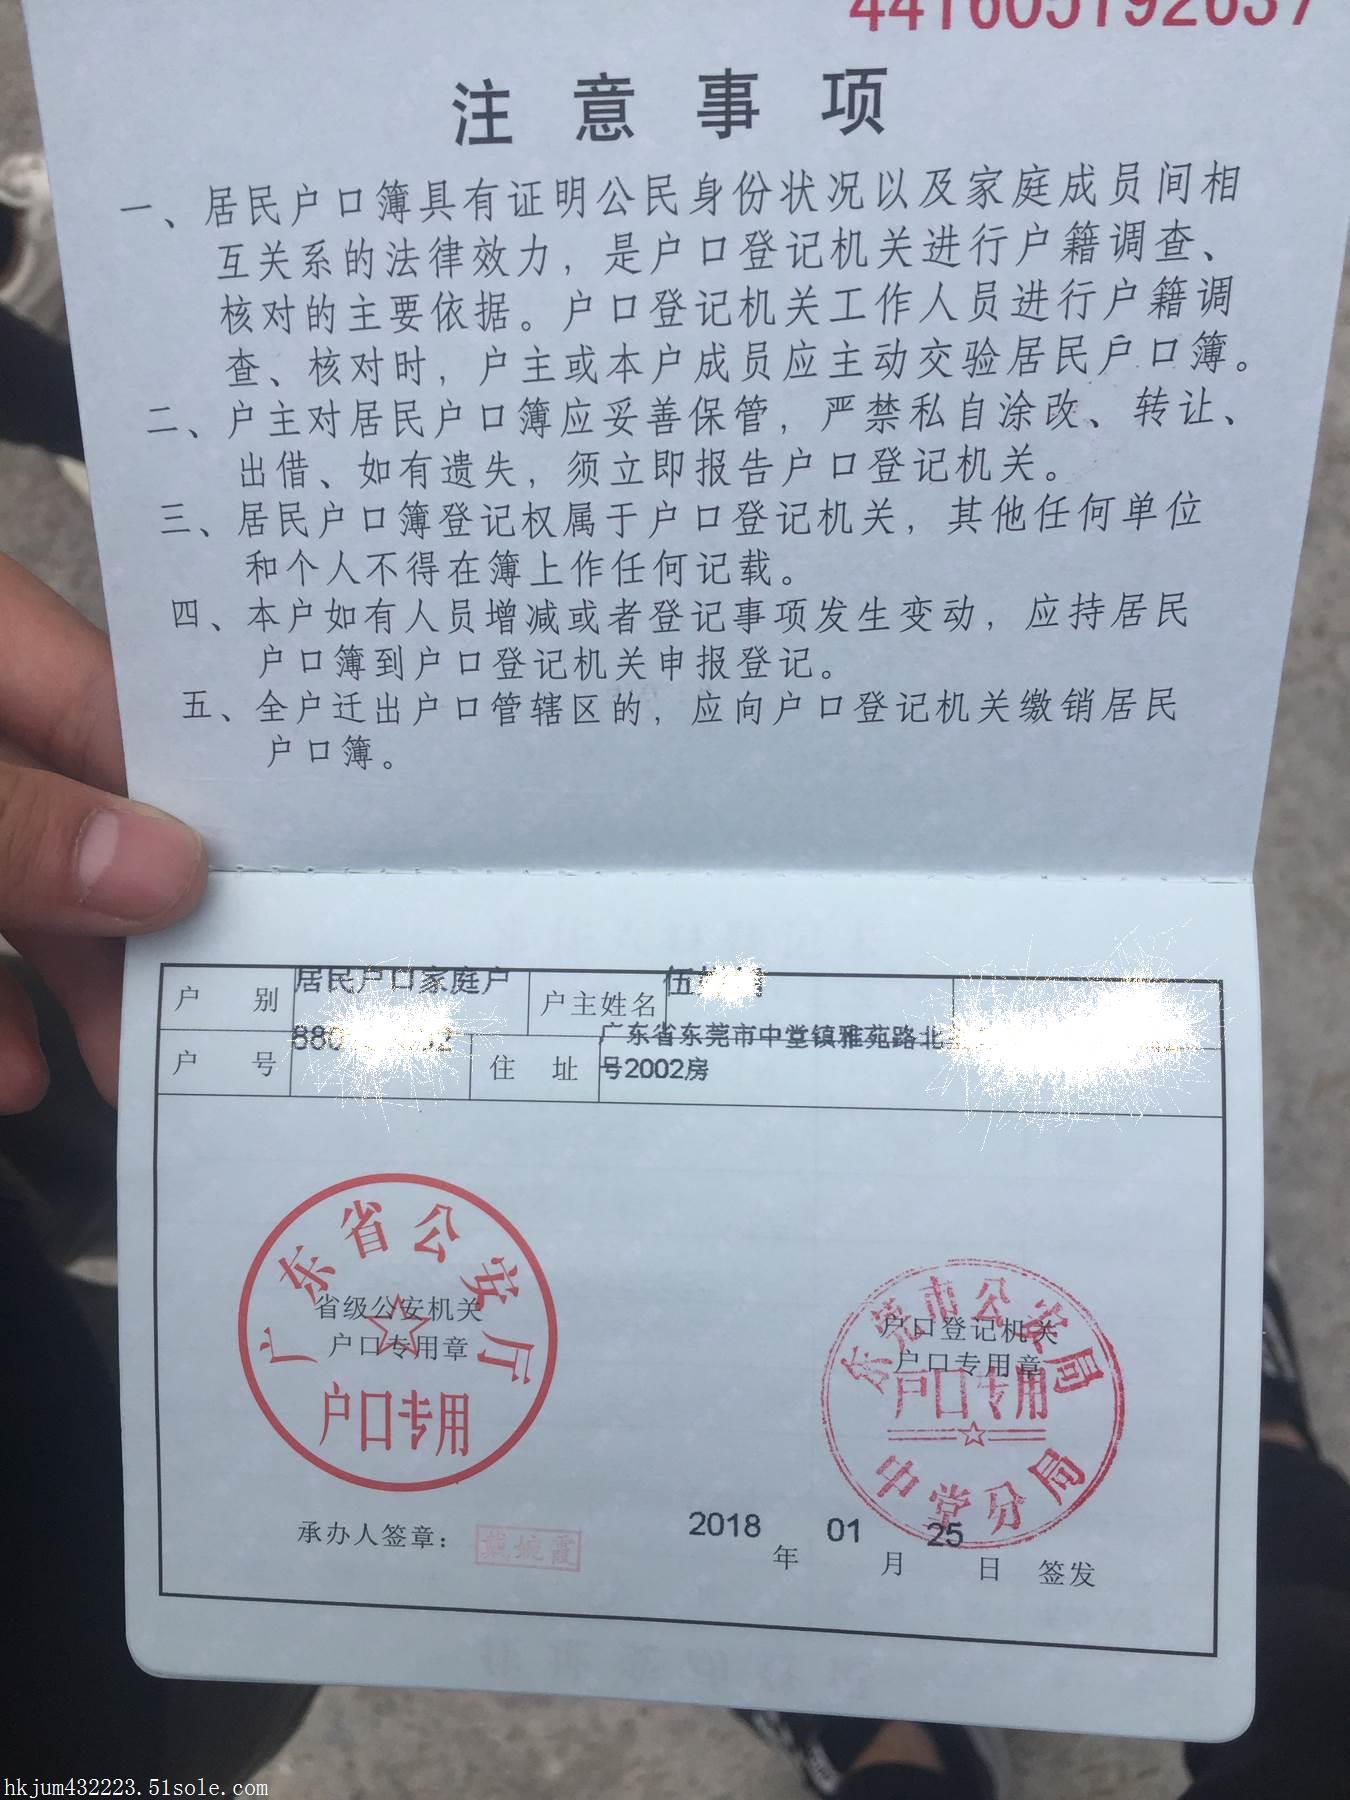 441605192637
注意事项
一、居民户口簿具有证明公民身份状况以及家庭成员间相
互关系的法律效力，是户口登记机关进行户籍调查、
核对的主要依据。户口登记机关工作人员进行户籍调
查、核对时，户主或本户成员应主动交验居民户口簿。
二、户主对居民户口簿应妥善保管，严禁私自涂改、转让、
出借、如有遗失，须立即报告户口登记机关。
三、居民户口簿登记权属于户口登记机关，其他任何单位
和个人不得在簿上作任何记载。
四、本户如有人员增减或者登记事项发生变动，应持居民
户口簿到户口登记机关申报登记。
五、全户迁出户口管辖区的，应向户口登记机关缴销居民
户口簿。
户 别 居民户口家庭户 户主姓名 伍
户 号 880 住 址 广东省东莞市中堂镇雅苑路北
号2002房
广东省公安厅
省级公安机关
户口专用章
户口专用
东莞市公安局
户口登记机关
户口专用章
户口专用
中堂分局
承办人签章： 戴婉霞
2018 年 01 月 25 日 签发
hkjum432223.51sole.com